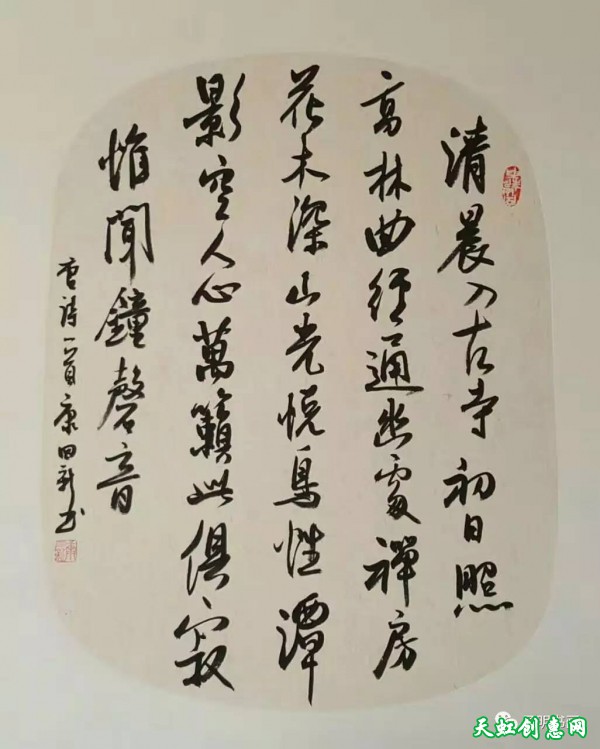 清晨入古寺初日照
高林曲徑通幽處禪房
花木深山光悦鳥性潭
影空人心萬籟此俱寂
惟聞鐘磬音
唐詩一首康田新书
天虹创惠网